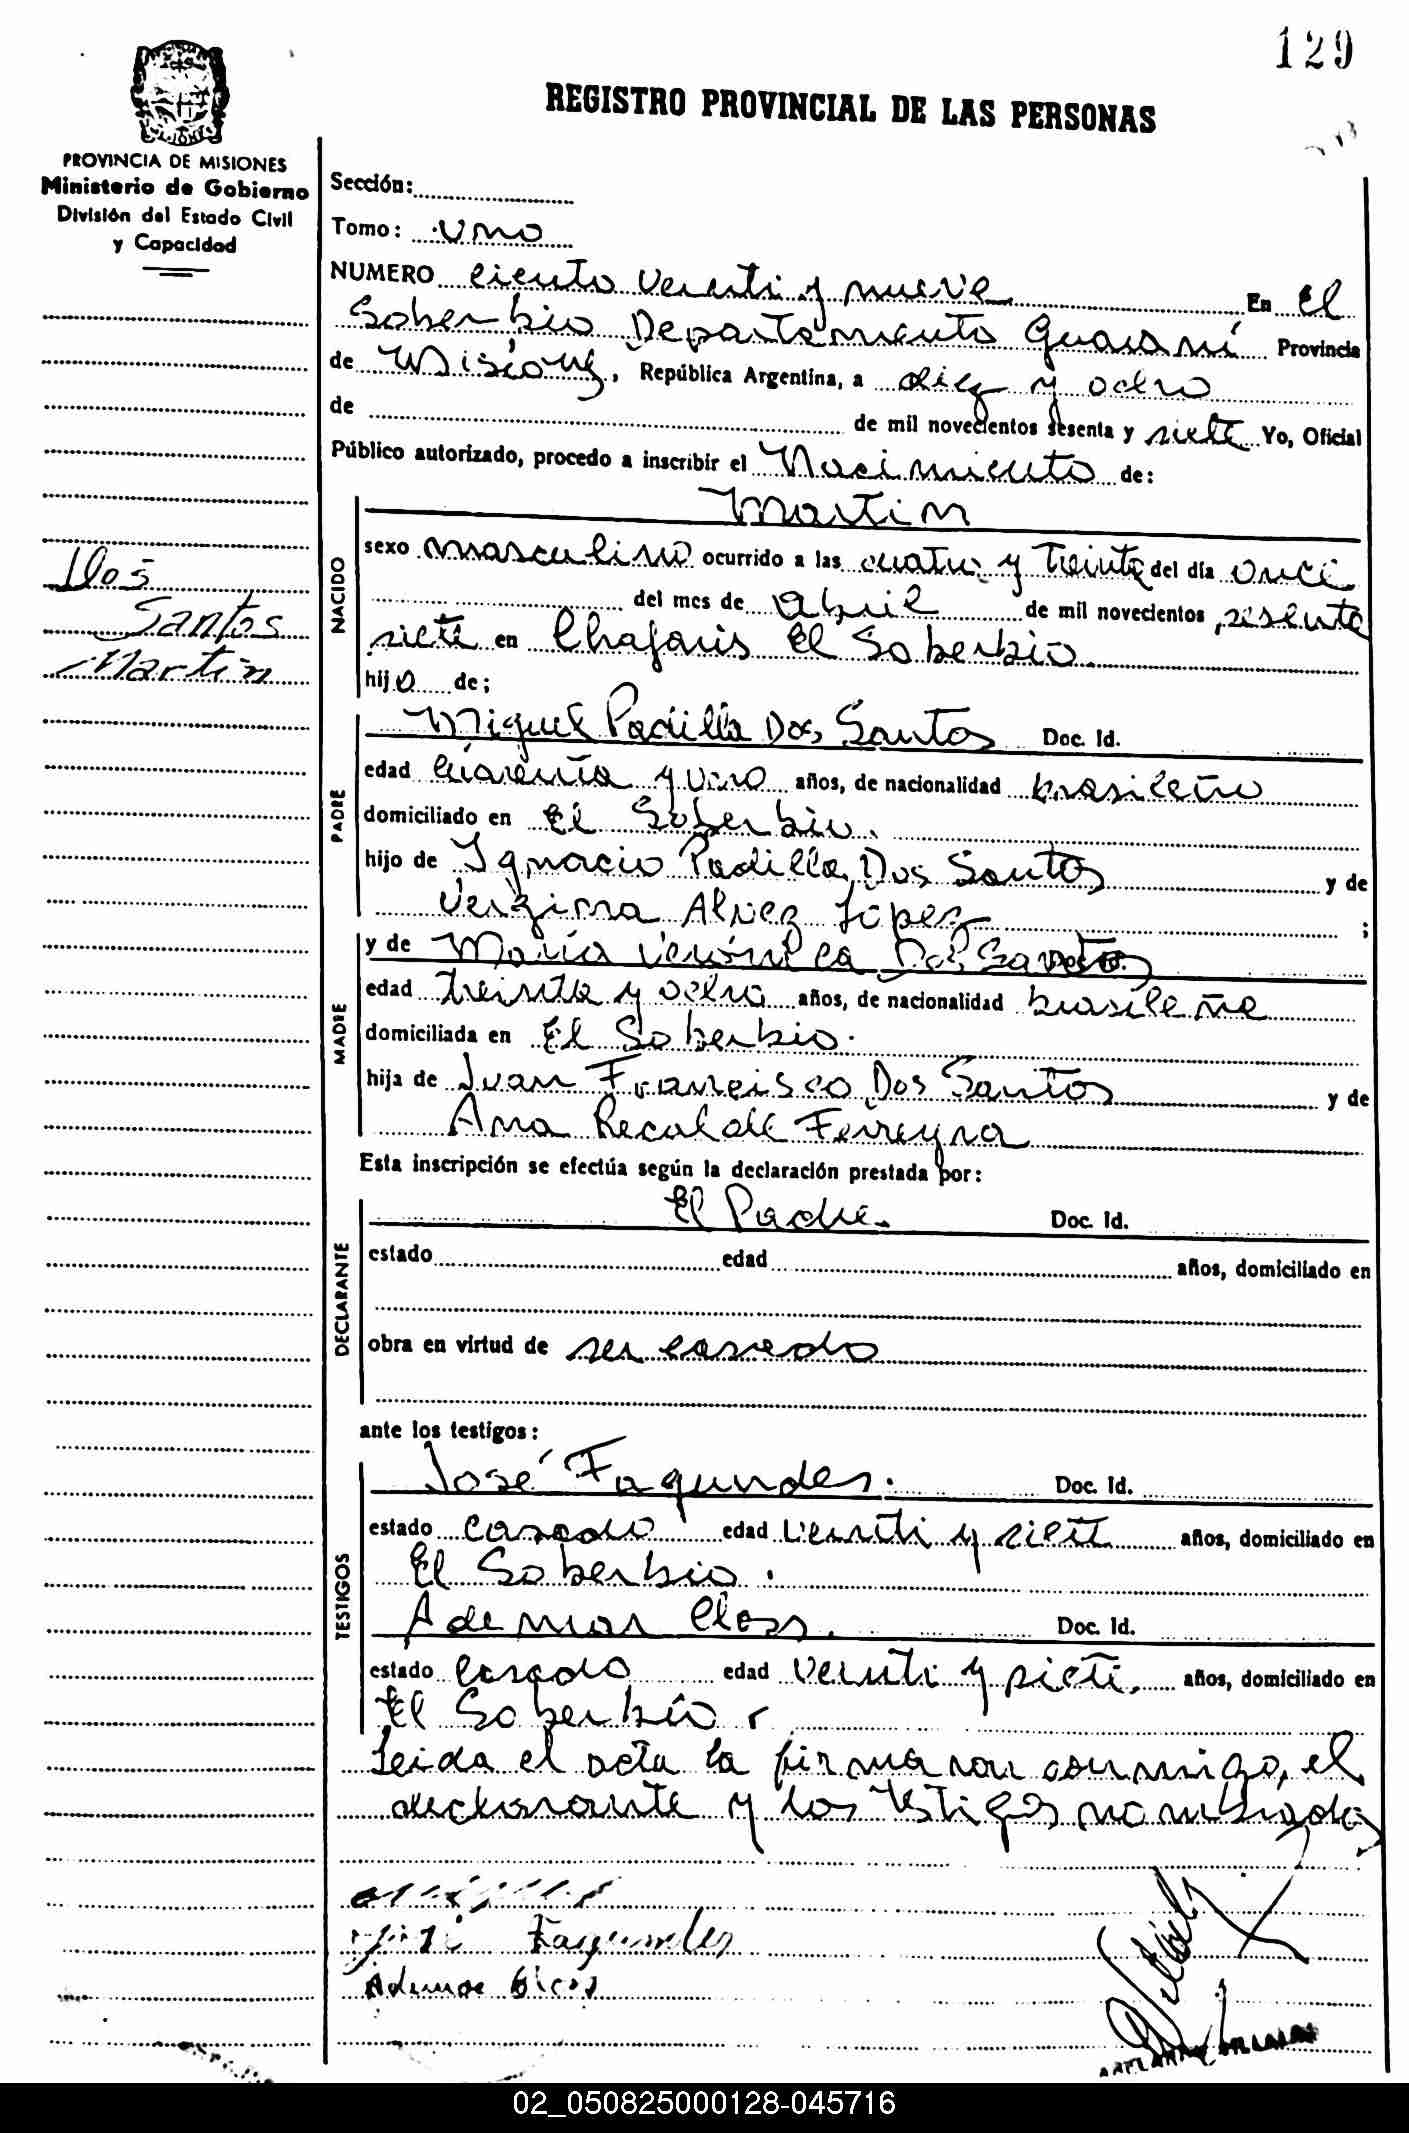 129
REGISTRO PROVINCIAL DE LAS PERSONAS
PROVINCIA DE MISIONES
Ministerio de Gobierno
División del Estado Civil
y Capacidad
Sección:
Tomo: Uno
NUMERO ciento veinti y nueve En El
Soberbio Departamento Guaraní Provincia
de Misiones, República Argentina, a diez y ocho
de de mil novecientos sesenta y siete Yo, Oficial
Público autorizado, procedo a inscribir el Nacimiento de:
Martin
Dos
Santos
Martin
NACIDO
sexo masculino ocurrido a las cuatro y treinta del día once
del mes de Abril de mil novecientos sesenta
siete en Chafaris El Soberbio.
hijo de;
PADRE
Miguel Padilla Dos Santos Doc. Id.
edad cuarenta y uno años, de nacionalidad brasileño
domiciliado en El Soberbio.
hijo de Ignacio Padilla Dos Santos y de
Alvez López ;
MADRE
y de María Verónica Dos Santos
edad treinta y ocho años, de nacionalidad brasileña
domiciliada en El Soberbio.
hija de Juan Francisco Dos Santos y de
Ana Recalde Ferreyra
Esta inscripción se efectúa según la declaración prestada por:
DECLARANTE
El Padre. Doc. Id.
estado edad años, domiciliado en
obra en virtud de ser casado
ante los testigos:
TESTIGOS
José Fagundes. Doc. Id.
estado casado edad veinti y siete años, domiciliado en
El Soberbio.
Ademar Closs. Doc. Id.
estado casado edad veinti y siete. años, domiciliado en
El Soberbio
Leida el acta la firmaron conmigo, el
declarante y los testigos nombrados
José Fagundes
Ademar Closs
02_050825000128-045716